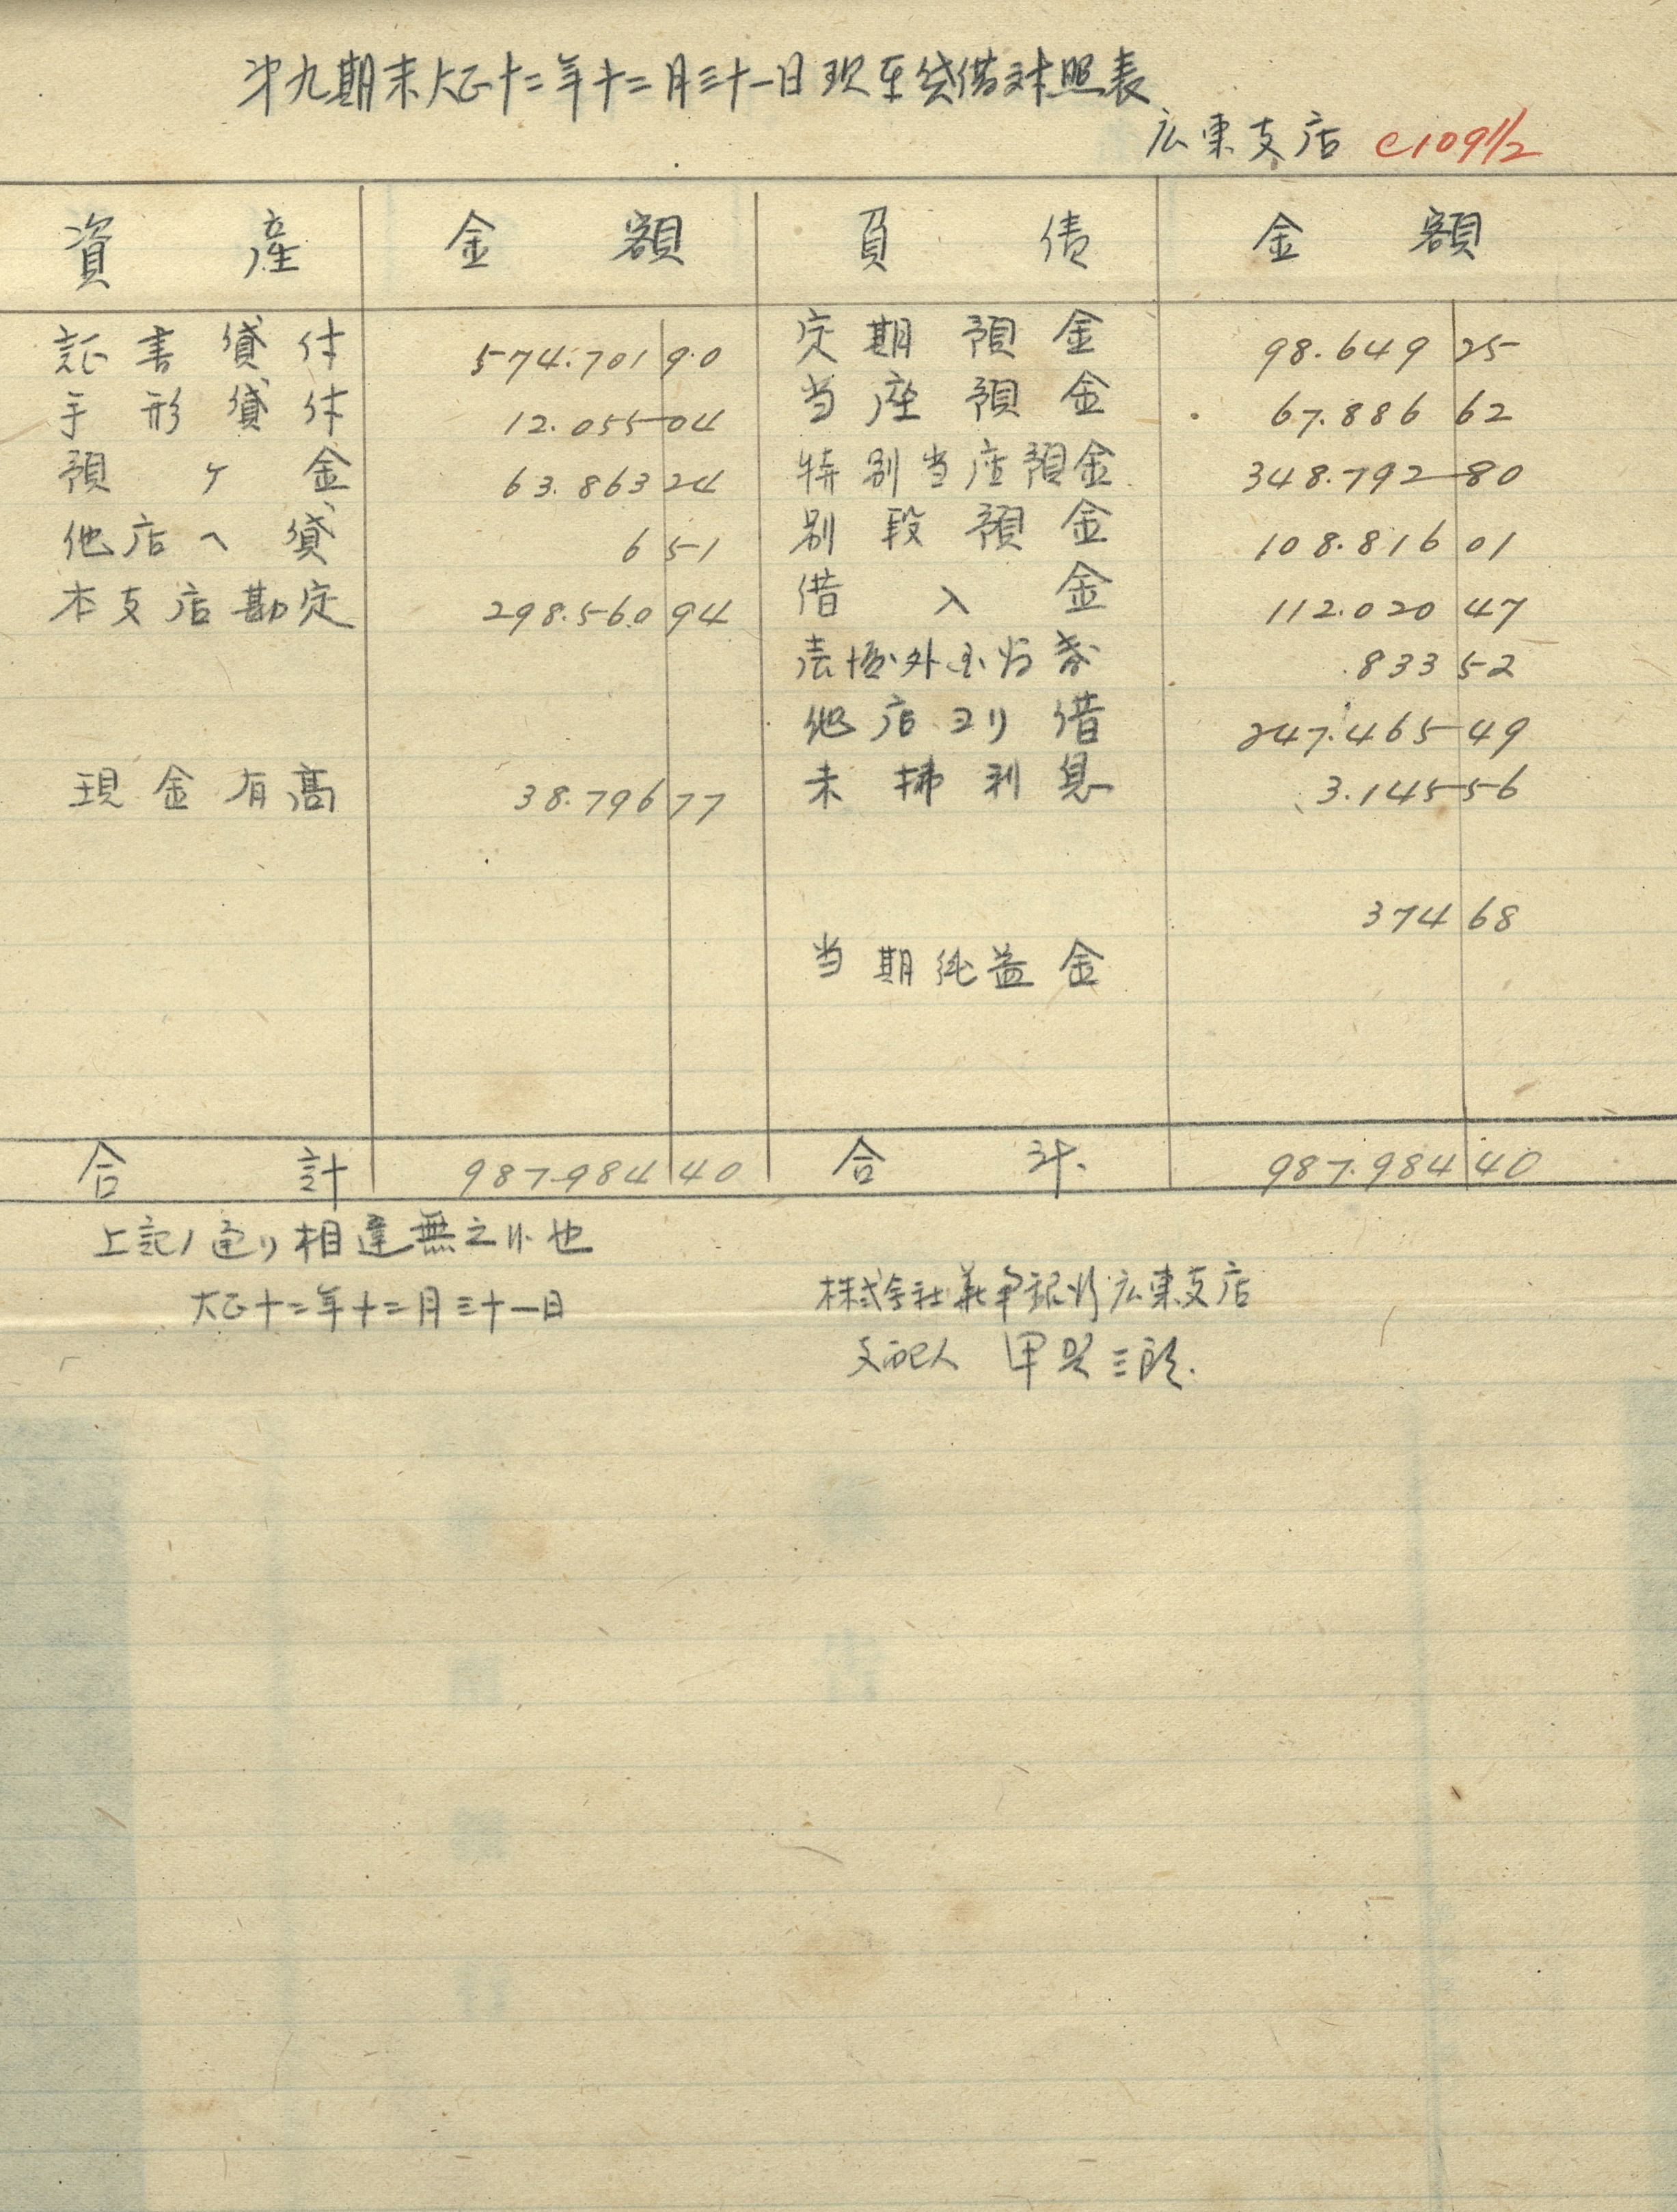 第九期末大正十二年十二月三十一日現在貸借対照表
広東支店 C109 1/2
資産 金額 負債 金額
証書貸付 574.701 90 定期預金 98.649 25
手形貸付 12.055 04 当座預金 67.886 62
預ケ金 63.863 24 特別当座預金 348.792 80
他店へ貸 6 51 別段預金 108.816 01
本支店勘定 298.560 94 借入金 112.020 47
833 52
他店ヨリ借 247.465 49
現金有高 38.796 77 未払利息 3.145 56
374 68
当期純益金
合計 987.984 40 合計 987.984 40
上記ノ通リ相違無之候也
大正十二年十二月三十一日
株式会社華南銀行広東支店
支配人